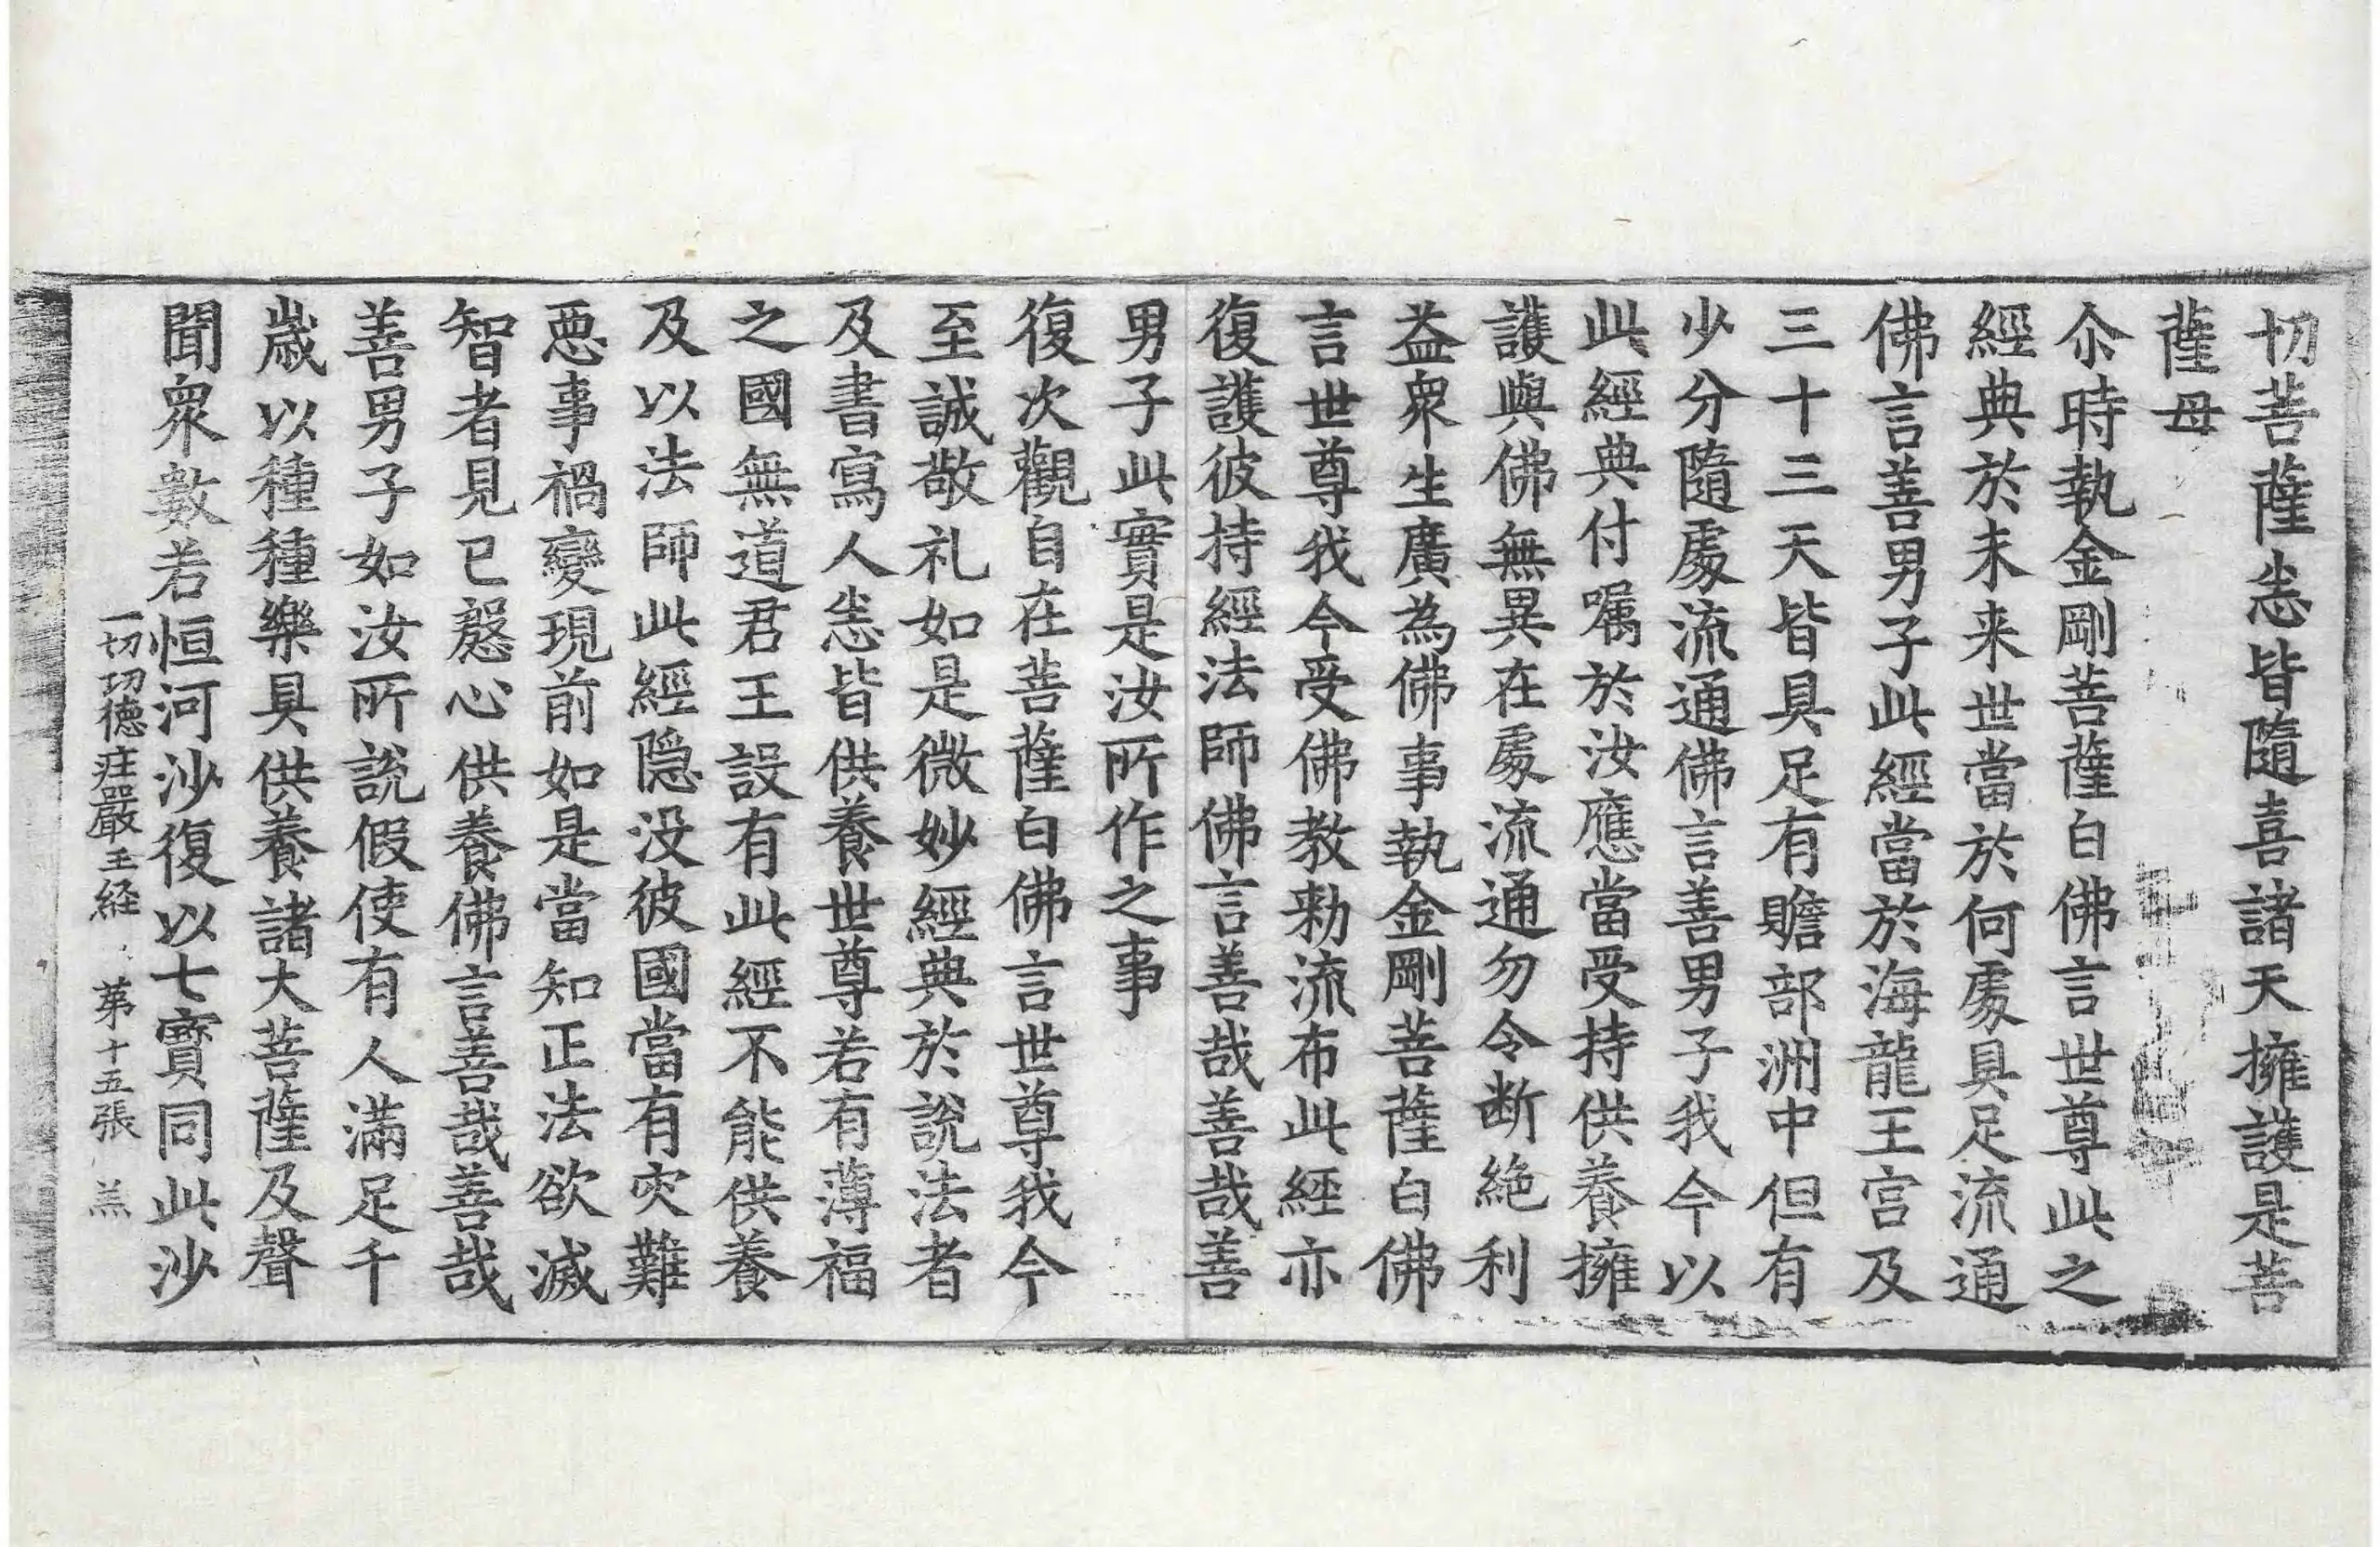 切菩薩恙皆隨喜諸天擁護是菩
薩母
尒時執金剛菩薩白佛言世尊此之
經典於未来世當於何處具足流通
佛言善男子此經當於海龍王宫及
三十三天皆具足有贍部洲中但有
少分隨處流通佛言善男子我今以
此經典付嘱於汝應當受持供養擁
護與佛無異在處流通勿令断絶利
益衆生廣為佛事執金剛菩薩白佛
言世尊我今受佛教勑流布此経亦
復護彼持經法師佛言善哉善哉善
男子此實是汝所作之事
復次觀自在菩薩白佛言世尊我今
至誠敬礼如是微妙經典於說法者
及書寫人恙皆供養世尊若有薄福
之國無道君王設有此經不能供養
及以法師此經隠没彼國當有灾難
惡事禍變現前如是當知正法欲滅
智者見已慇心供養佛言善哉善哉
善男子如汝所說假使有人滿足千
歲以種種樂具供養諸大菩薩及聲
聞衆數若恒河沙復以七寳同此沙
一切功德荘嚴王経 苐十五張 羔